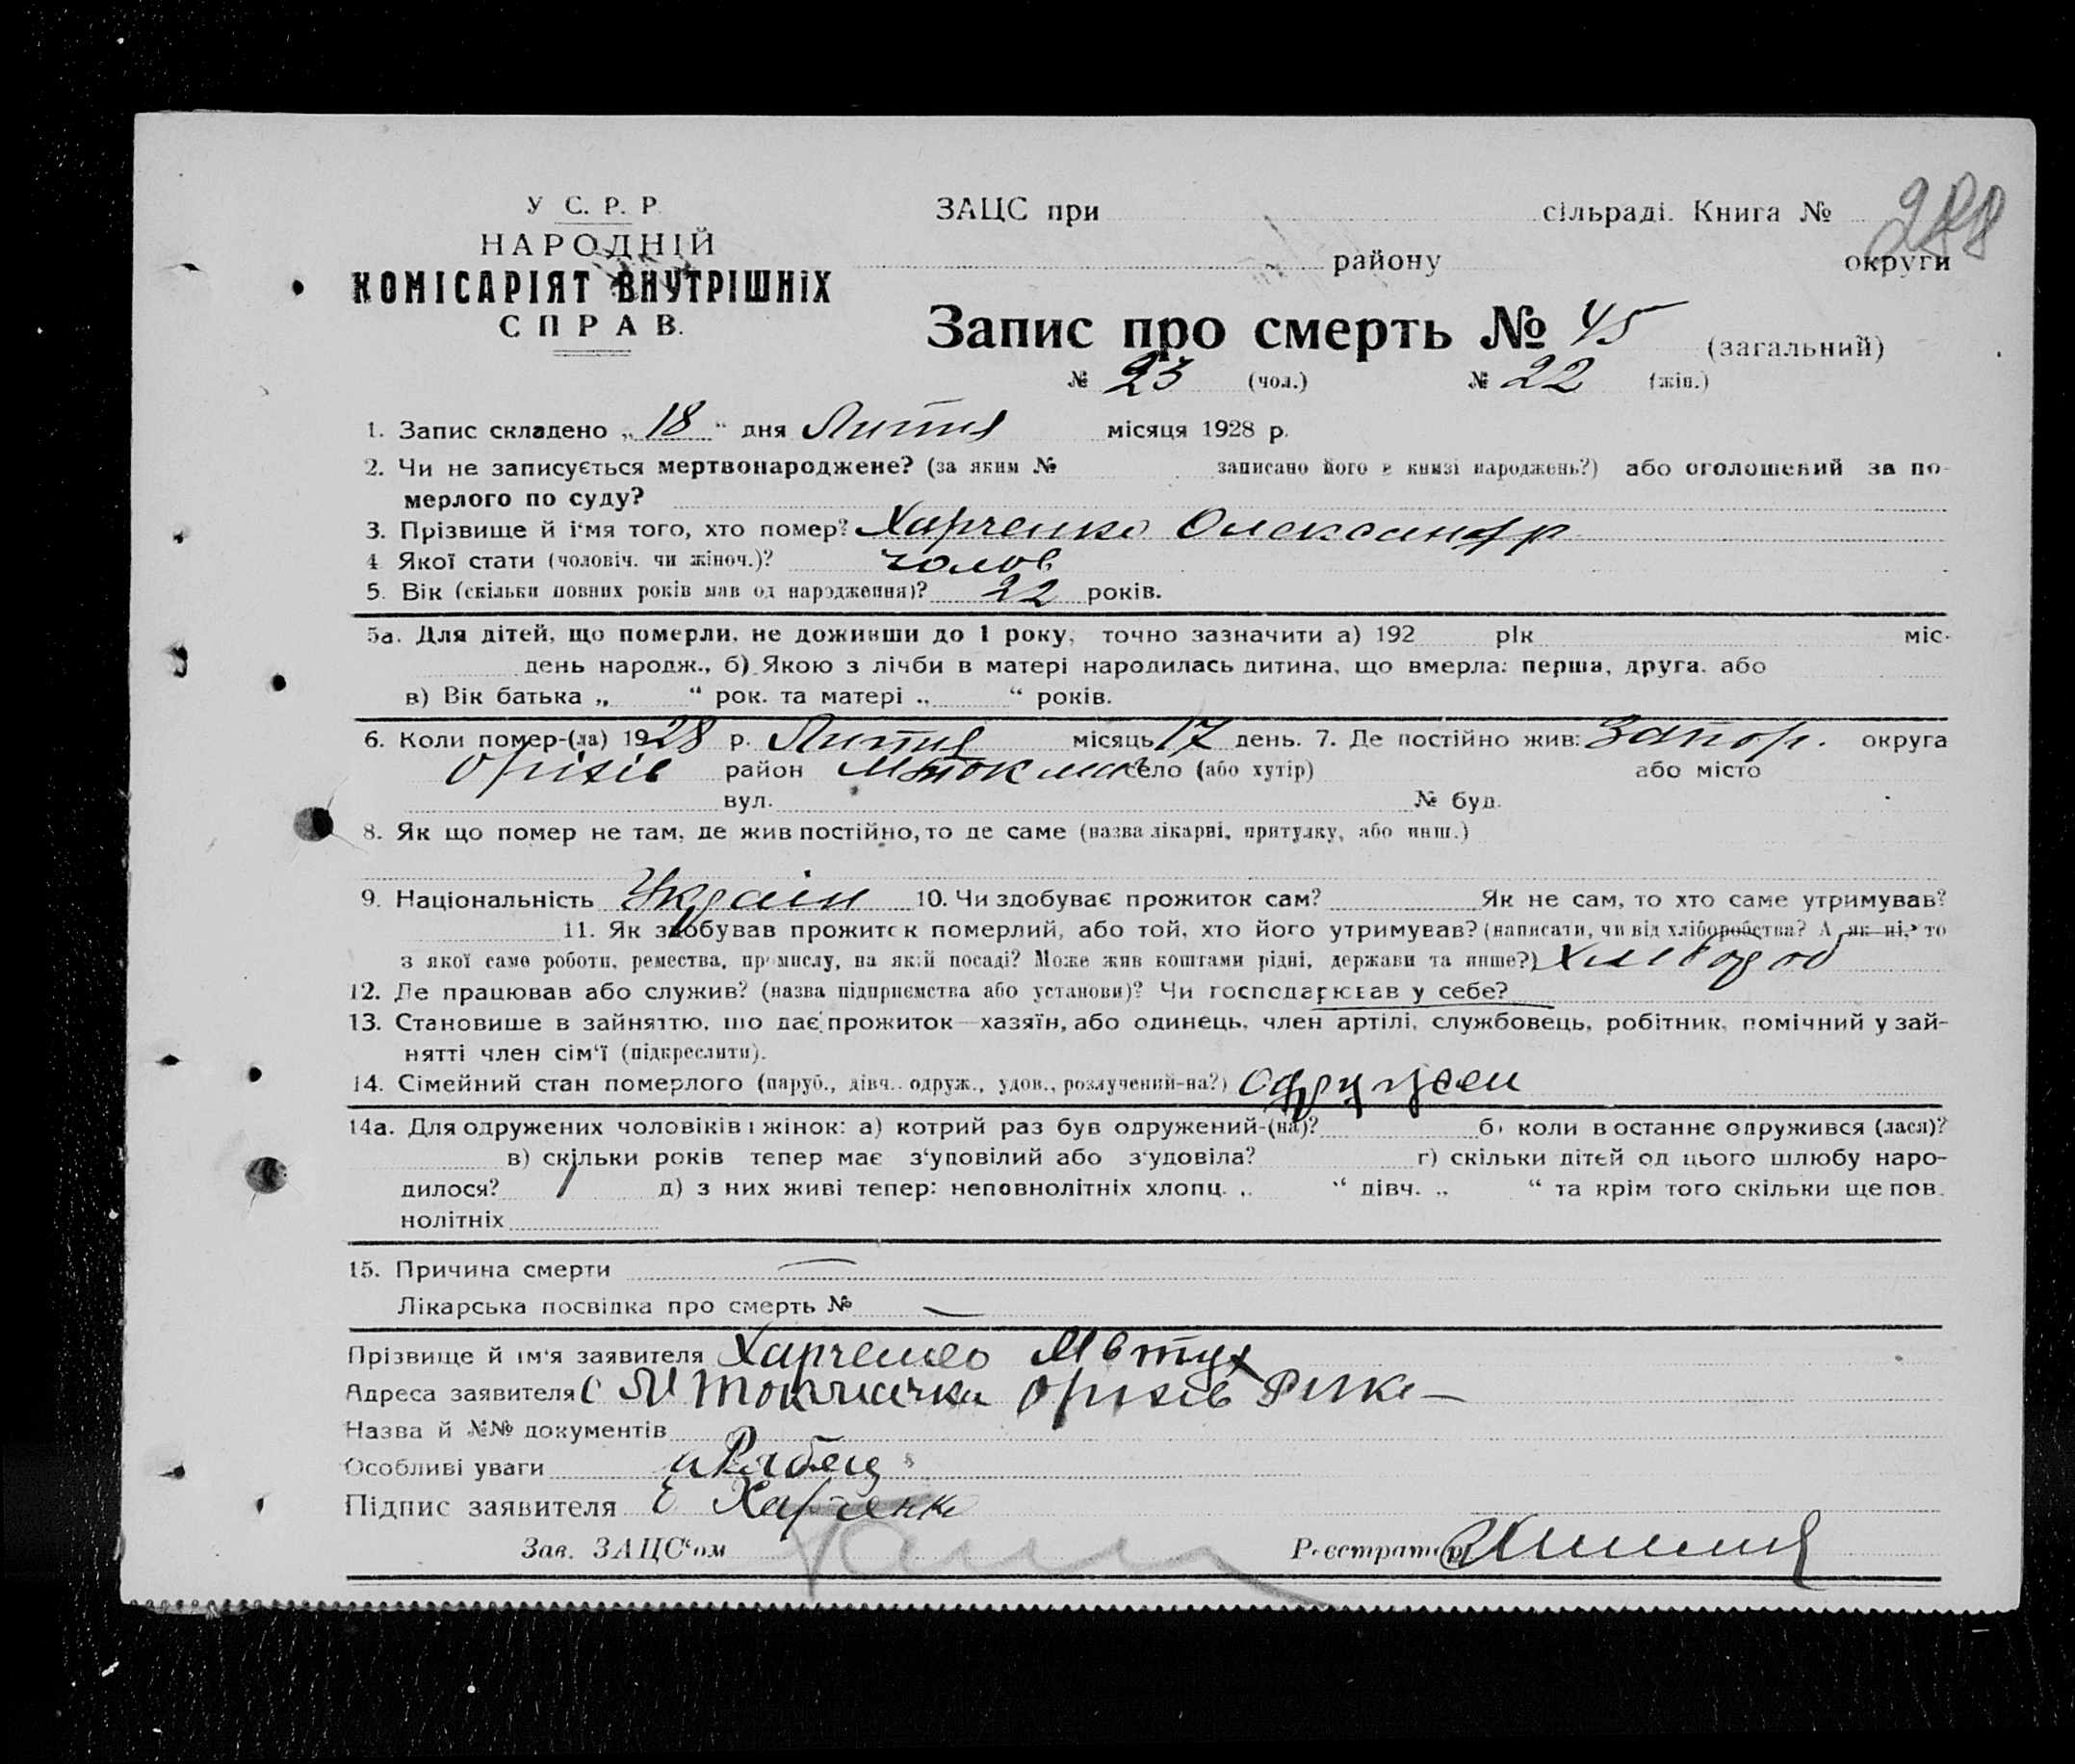 У С. Р. Р.
НАРОДНІЙ
КОМІСАРІЯТ ВНУТРІШНІХ
СПРАВ.
ЗАЦС при сільраді. Книга № 288
району округи
Запис про смерть № 45 (загальний)
№ 23 (чол.) № 22 (жін.)
1. Запис складено „18“ дня Липня місяця 1928 р.
2. Чи не записується мертвонароджене? (за яким № записано його в книзі народжень?) або оголошений за по-
мерлого по суду?
3. Прізвище й ім'я того, хто помер? Харченко Олександр
4 Якої стати (чоловіч. чи жіноч.)? чолов
5. Вік (скільки повних років мав од народження)? 22 років.
5а. Для дітей, що померли, не доживши до 1 року, точно зазначити а) 192 рік міс.
день народж., б) Якою з лічби в матері народилась дитина, що вмерла: перша, друга. або
в) Вік батька „ “ рок. та матері „ “ років.
6. Коли помер-(ла) 1928 р. Липня місяць 17 день. 7. Де постійно жив: Запор. округа
Оріхів район Мтокмач село (або хутір) або місто
вул. № буд.
8. Як що помер не там, де жив постійно, то де саме (назва лікарні, притулку, або инш.)
9. Національність Україн 10. Чи здобуває прожиток сам? Як не сам, то хто саме утримував?
11. Як здобував прожиток померлий, або той, хто його утримував? (написати, чи від хліборобства? А як ні, то
з якої саме роботи, ремества, промислу, на якій посаді? Може жив коштами рідні, держави та инше?) Хлібороб
12. Де працював або служив? (назва підприємства або установи)? Чи господарював у себе?
13. Становище в зайняттю, що дає прожиток—хазяїн, або одинець, член артілі, службовець, робітник, помічний у зай-
нятті член сім'ї (підкреслити).
14. Сімейний стан померлого (паруб., дівч., одруж., удов., розлучений-на?) Одружен
14а. Для одружених чоловіків і жінок: а) котрий раз був одружений-(на)? б) коли востаннє одружився (лася)?
в) скільки років тепер має з'удовілий або з'удовіла? г) скільки дітей од цього шлюбу наро-
дилося? 1 д) з них живі тепер: неповнолітніх хлопц. „ “ дівч. „ “ та крім того скільки ще пов.
нолітніх
15. Причина смерти —
Лікарська посвідка про смерть № —
Прізвище й ім'я заявителя Харченко Явтух
Адреса заявителя С М Токмачка Оріхів
Назва й №№ документів
Особливі уваги
Підпис заявителя Є Харченко
Зав. ЗАЦС'ом Реєстратор